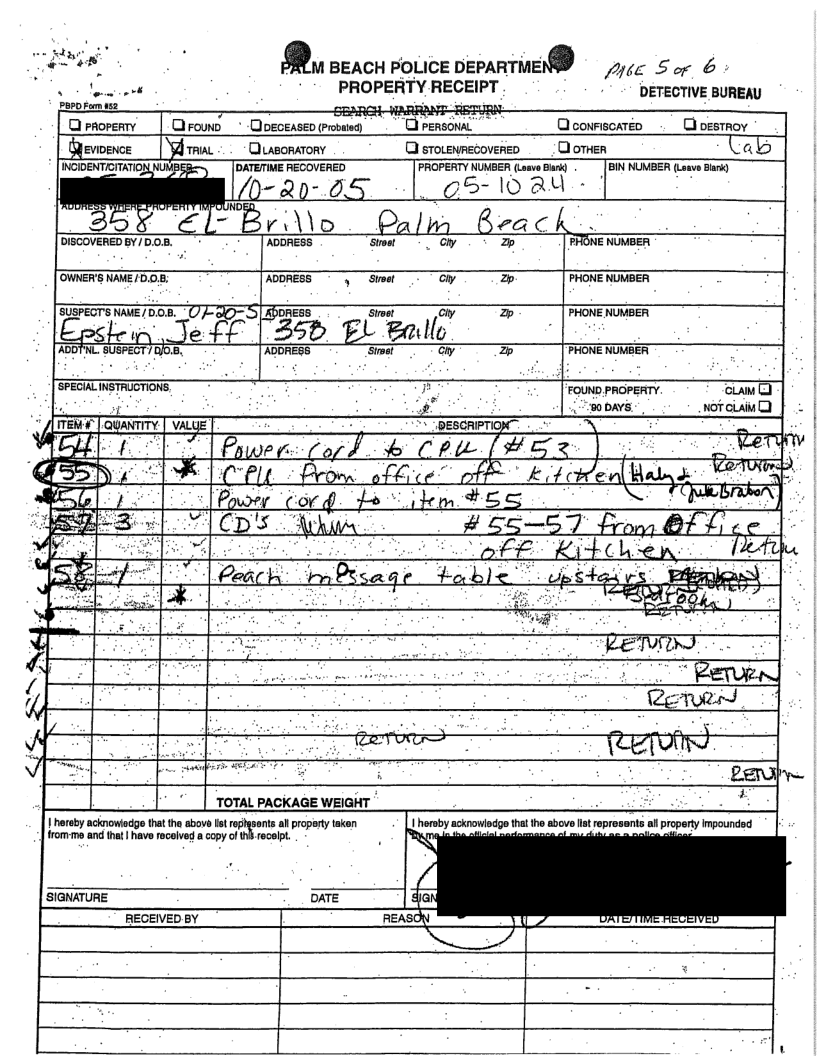 PALM BEACH POLICE DEPARTMENT
PAGE 5 OF 6
PROPERTY RECEIPT
DETECTIVE BUREAU
PBPD Form #52
SEARCH WARRANT RETURN
PROPERTY FOUND DECEASED (Probated) PERSONAL CONFISCATED DESTROY
EVIDENCE TRIAL LABORATORY STOLEN/RECOVERED OTHER Lab
INCIDENT/CITATION NUMBER DATE/TIME RECOVERED PROPERTY NUMBER (Leave Blank) BIN NUMBER (Leave Blank)
10-20-05 05-1024
ADDRESS WHERE PROPERTY IMPOUNDED
358 El-Brillo Palm Beach
DISCOVERED BY / D.O.B. ADDRESS Street City Zip PHONE NUMBER
OWNER'S NAME / D.O.B. ADDRESS Street City Zip PHONE NUMBER
SUSPECT'S NAME / D.O.B. 01-20-5 ADDRESS Street City Zip PHONE NUMBER
Epstein, Jeff 358 El Brillo
ADDT'NL. SUSPECT / D.O.B. ADDRESS Street City Zip PHONE NUMBER
SPECIAL INSTRUCTIONS FOUND PROPERTY CLAIM
90 DAYS NOT CLAIM
ITEM # QUANTITY VALUE DESCRIPTION
54 1 Power cord to CPU (#53) Return
55 1 CPU from office off Kitchen Returned
56 1 Power cord to item #55
57 3 CD's #55-57 from Office
off Kitchen Return
58 1 Peach massage table upstairs
RETURN
RETURN
RETURN
RETURN
RETURN RETURN
RETURN
TOTAL PACKAGE WEIGHT
I hereby acknowledge that the above list represents all property taken
from me and that I have received a copy of this receipt.
I hereby acknowledge that the above list represents all property impounded
by me in the official performance of my duty as a police officer
SIGNATURE DATE SIGN
RECEIVED BY REASON DATE/TIME RECEIVED